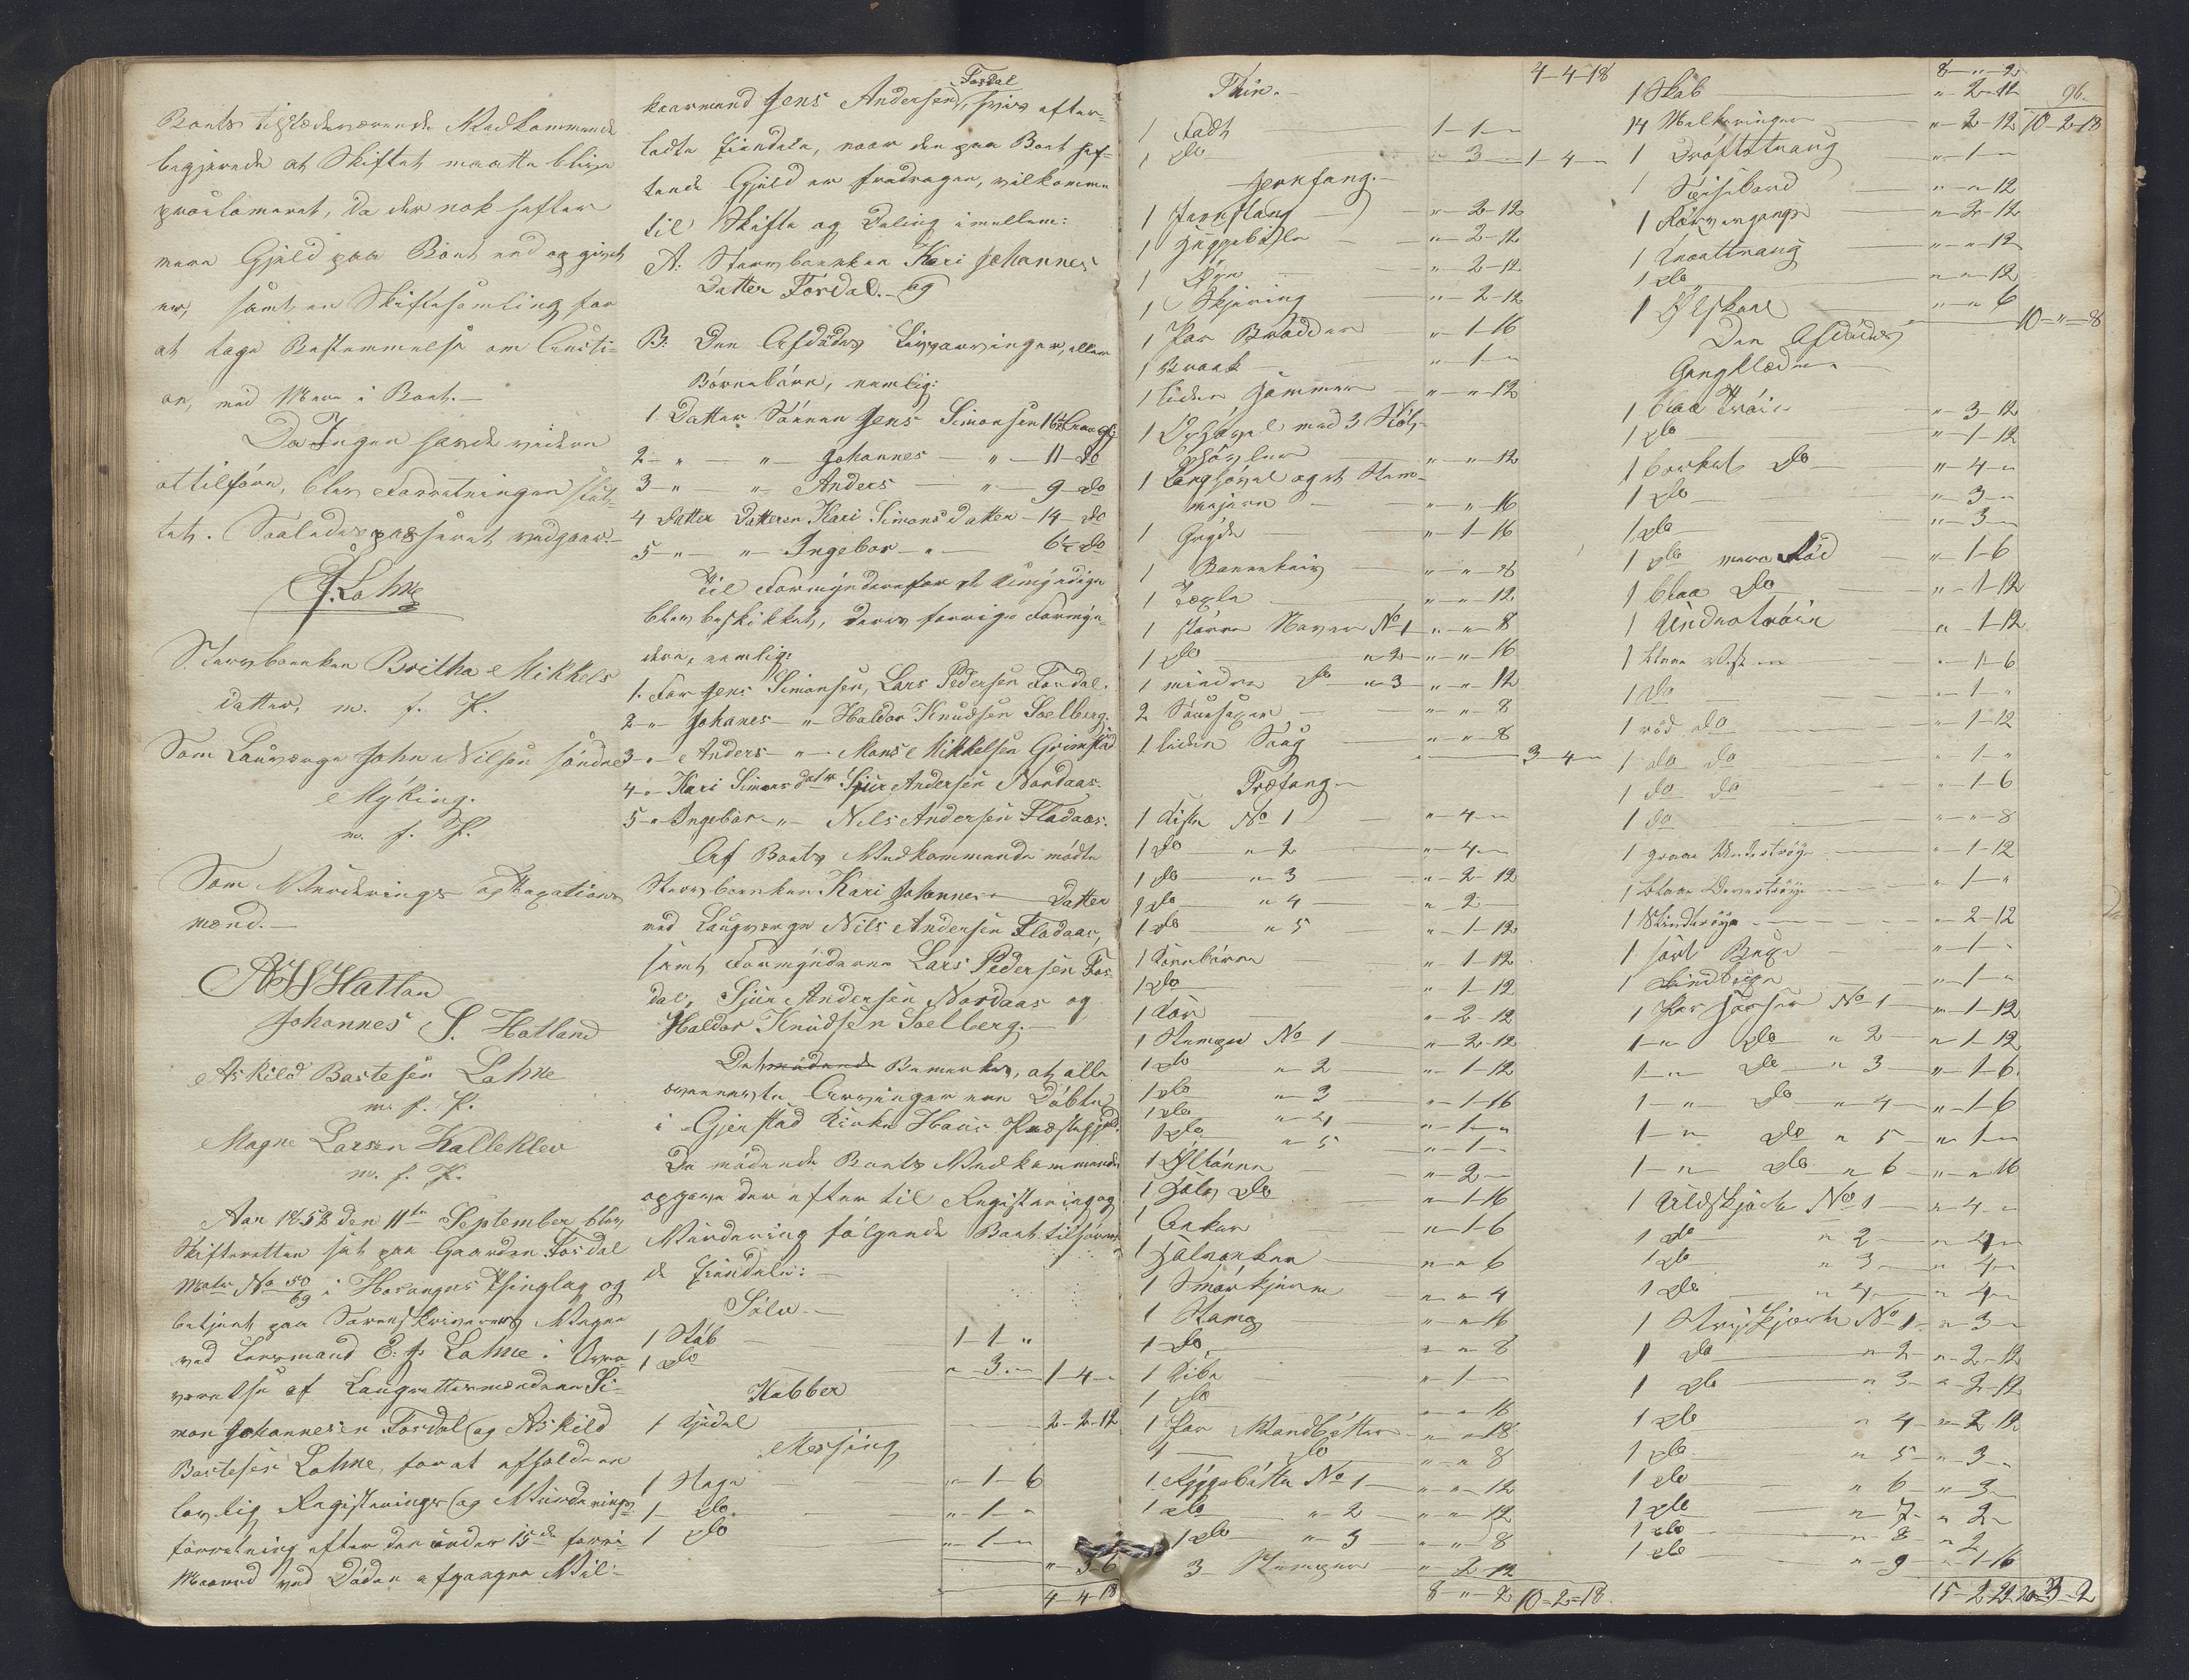 Boets tilstædeværende Medkommende
begjærede at Skiftet maatte blive
proclameret, da der nok hefter
mere Gjæld paa Boet end opgivet
er, samt en Skiftesamling for
at tage Bestemmelse om Aucti-
on, med Mere i Boet.
Da Ingen havde videre
at tilføre, blev Forretningen slut-
tet. Saaledes passeret vedgaaes.
Lahne
Stervboenken Britha Mikkels
datter, m. f. P.
Som Laugværge John Nilsen søndre
Myking.
m. f. P.
Som Vurderings og Taxations
mænd.
Hatlan
Johannes S. Hatland
Askild Bastesen Lahne
m. f. P.
Magne Larsen Kalleklev
m. f. P.
Aar 1852 den 11te September blev
Skifteretten sat paa Gaarden Fosdal
Matr No 50/69 i Hosangers Thinglag og
betjent paa Sorenskriverens Vegne
ved Lensmand Lahne i Over-
værelse af Laugrettesmændene Si-
mon Johannesen Fosdal og Askild
Bastesen Lahne, for at afholde en
lovlig Registrerings og Vurderings
forretning efter den under 15de forri
Maaned ved Døden afgangne Vil-
Fosdal
kaarmand Jens Andersen, hvis efter-
ladte Eiendele, naar den paa Boet hef-
tende Gjæld er fradragen, vilkomme
til Skifte og Deling imellem:
A: Stervboenken Kari Johannes
Datter Fosdal. og
B: Den Afdødes Livsarvinger, eller
Børnebørn, nemlig:
1 Datter Sønnen Jens Simonsen 16½ Aar gl:
2 - " - " - Johannes - " - 11 do
3 - " - " - Anders - " - 9 do
4 Datter Datteren Kari Simons datter - 14 do
5 - " - " - Ingebor - " - 6½ do
Til Formyndere for de Umyndige
blev beskikket, deres forrige Formyn-
dere, nemlig:
1. For Jens Simonsen, Lars Pedersen Fosdal.
2 - " Johanes - " - Haldor Knudsen Soelberg.
3 - " Anders - " - Mons Mikkelsen Grimstad
4 - " Kari Simons datter Sjur Andersen Nordaas.
5 - " Ingebor - " - Nils Andersen Fladaas.
Af Boets Medkommende mødte
Stervboenken Kari Johannes Datter
med Laugværge Nils Andersen Fladaas,
samt Formynderne Lars Pedersen Fos-
dal, Sjur Andersen Nordaas og
Haldor Knudsen Soelberg.
Det mødende Bemærkes, at alle
ovennevnte Arvinger ere Døbte
i Gjerstad Kirke Haus Præstegjeld.
De mødende Boets Medkommende
opgave derefter til Registrering og
Vurdering følgende Boet tilhøren-
de Eiendele:
Sølv.
1 Støb 1-1 "
1 do " - 3 - " 1-4 - "
Kobber
1 Kjedel 2-2-12
Messing
1 Stage " - 1 - 6
1 do. " - 1 - "
1 do " - 1 - "
" 3-6
4-4-18
Thin. 4-4-18
1 Fadt 1-1 - "
1 do " 3 - " 1-4 - "
Jernfang.
1 Jernstang " - 2-12
1 Huggebile " - 2-12
1 " - 2-12
1 Skjæring " - 2-12
1 Par Brødder " - 1-16
1 " - 1 - "
1 liden Hammer " - " - 12
1 med 3
" - " - 12
1 Langhøvel og et
" - " - 16
1 " - 1-16
1 " - " - 8
1 " - " - 12
1 større Naver No 1 " - " - 8
1 do " 2 " - " - 16
1 mindre do " 3 " - " - 12
2 Sauesaxer " - " - 8
1 liden Saug " - " - 8
3-4 - "
Træfang.
1 Kiste No 1 " - 4 - "
1 do " 2 " - 4 - "
1 do " 3 " - 2-12
1 do " 4 " - 2 - "
1 do " 5 " - 1-12
1 Kornbørre " - 1-12
1 do " - 1-12
1 Kar " - 2-12
1 Stampe No 1 " - 2-12
1 do " 2 " - 1-12
1 do " 3 " - 1-16
1 do " 4 " - 1 - "
1 do " 5 " - 1 - "
1 Øltønne " - 2 - "
1 Halv do " - 1-16
1 Anker " - 1-6
1 Halvanker " - " 6
1 Smørkjerne " - " 4
1 Stamp " - " 16
1 do. " - " 8
1 Kibe " - 1 - "
1 do " - " 16
1 Par Vandbøtter " - " 18
1 do " - " 8
1 Ryggebøtte No 1 " - " 12
1 do " 2 " - " 12
1 do " 3 " - " 8
3 Stamper " - 2-12
8 - " - 2 10-2-18
96.
8 - " - 2
1 Skab " - 2-12
14 Melkeringer " - 2-12 10-2-18
1 Drøftetraug " - 1 - "
1 " - " 12
1 " - 2-12
1 " - " - 12
1 do " - " 12
1 Ølskaal " - " 6
10 - " - 8
Den Afdødes
Gangklæder.
1 blaa Trøie " - 3-12
1 do " - 1-12
1 barket do " - 4 - "
1 do " - 3 - "
1 do " - 3 - "
1 do rød " - 1-6
1 blaa do " - 1-12
1 Undertrøie " - 1-12
1 blaae Vest " - 1-6
1 do " - 1 - "
1 rød do " - 1-12
1 do do " - 1 - "
1 do do " - 1-6
1 do " - " - 8
1 graae Undertrøye " - 1-12
1 blaae " - 1 - "
1 Skindtrøye " - 2-12
1 sort Buxe " - 1 - "
1 Skindbuxe " - 1 - "
1 Par Hoser No 1 " - 1-12
1 - " do " 2 " - 1-12
1 - " do " 3 " - 1-6
1 - " do " 4 " - 1-6
1 - " do " 5 " - 1 - "
1 - " do " 6 " - " 16
1 Uldskjorte No 1 " - 4 - "
1 do " 2 " - 4 - "
1 do " 3 " - 4 - "
1 do " 4 " - 4 - "
1 Stryskjorte No 1 " - 3 - "
1 do " 2 " - 2-12
1 do " 3 " - 2-12
1 do " 4 " - 2-12
1 do " 5 " - 3 - "
1 do " 6 " - 3 - "
1 do " 7 " - 2 - "
1 do " 8 " - 2
1 do " 9 " - 1-16
15-2-22 20-3-2